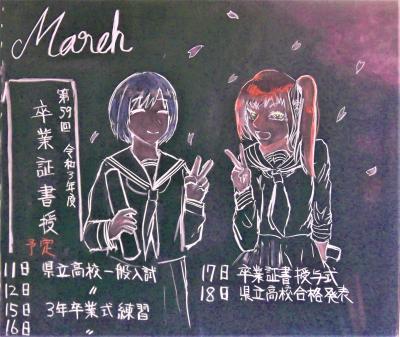 March
第59回 令和3年度
卒業証書授
予定
11日 県立高校一般入試
12日 〃
15日 3年卒業式練習
16日 〃
17日 卒業証書授与式
18日 県立高校合格発表